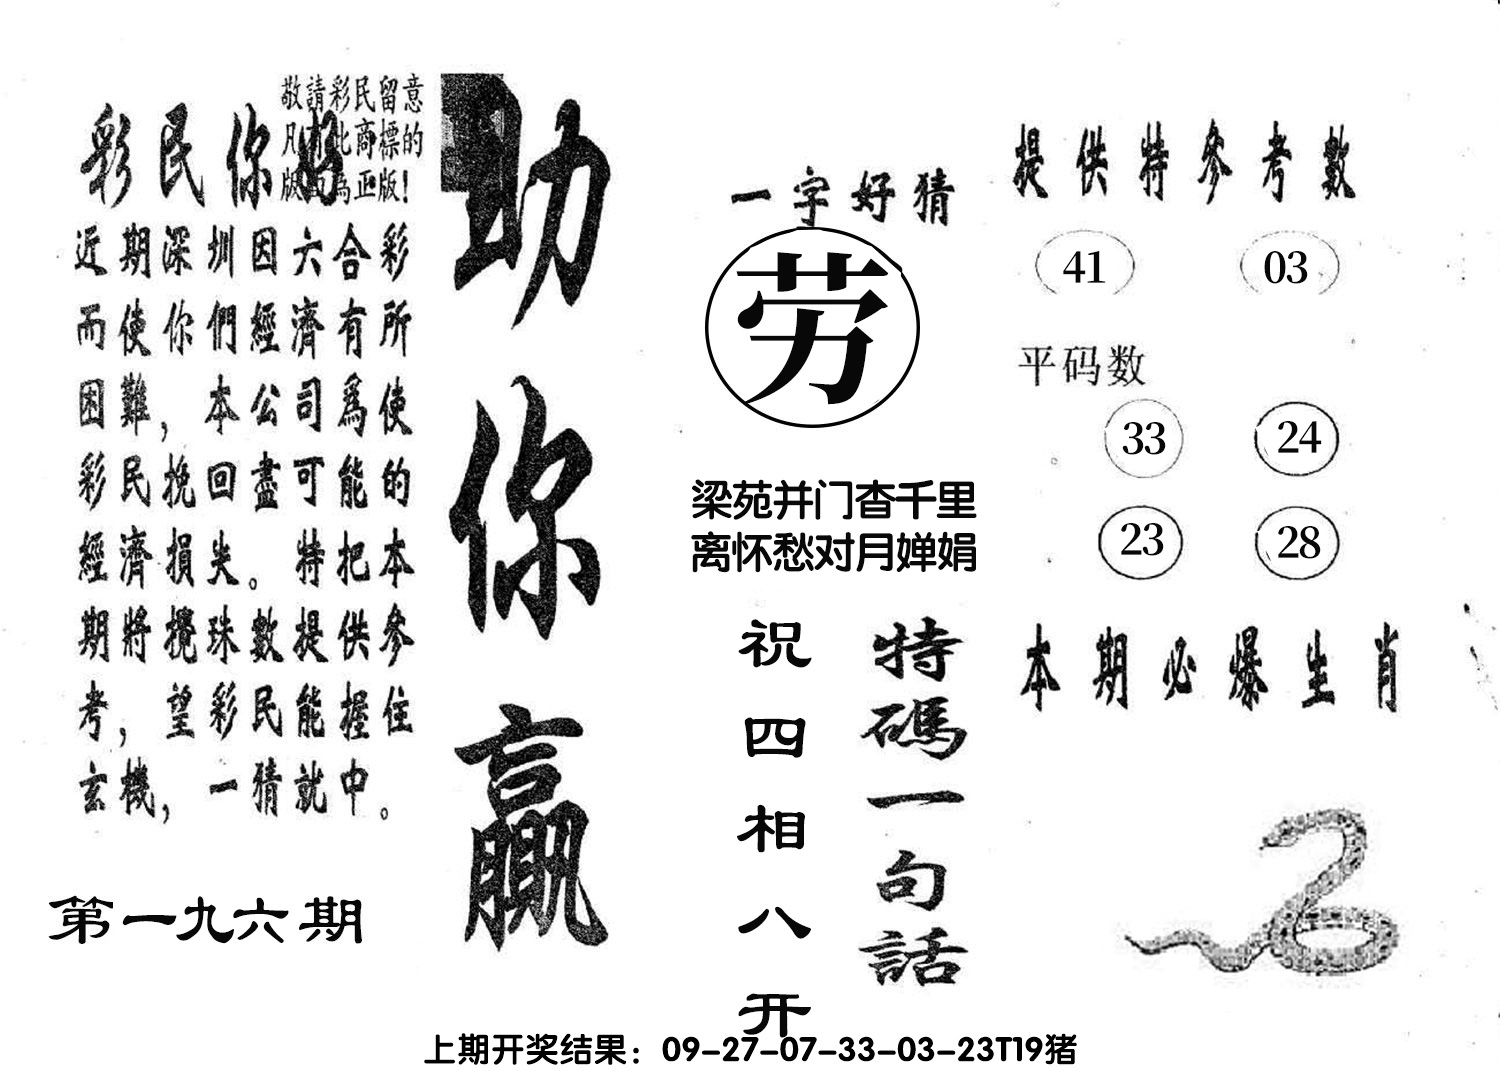 敬請彩民留意
凡有此商標的
版面為正版!
彩民你好
近期深圳因六合彩
而使你們經濟有所
困難，本公司爲使
彩民挽回盡可能的
經濟損失。特把本
期將攪珠數提供參
考，望彩民能握住
玄機，一猜就中。
第一九六期
助你贏
一字好猜
劳
梁苑并门杳千里
离怀愁对月婵娟
祝四相八开
特碼一句話
提供特參考數
41 03
平码数
33 24
23 28
本期必爆生肖
上期开奖结果：09-27-07-33-03-23T19猪